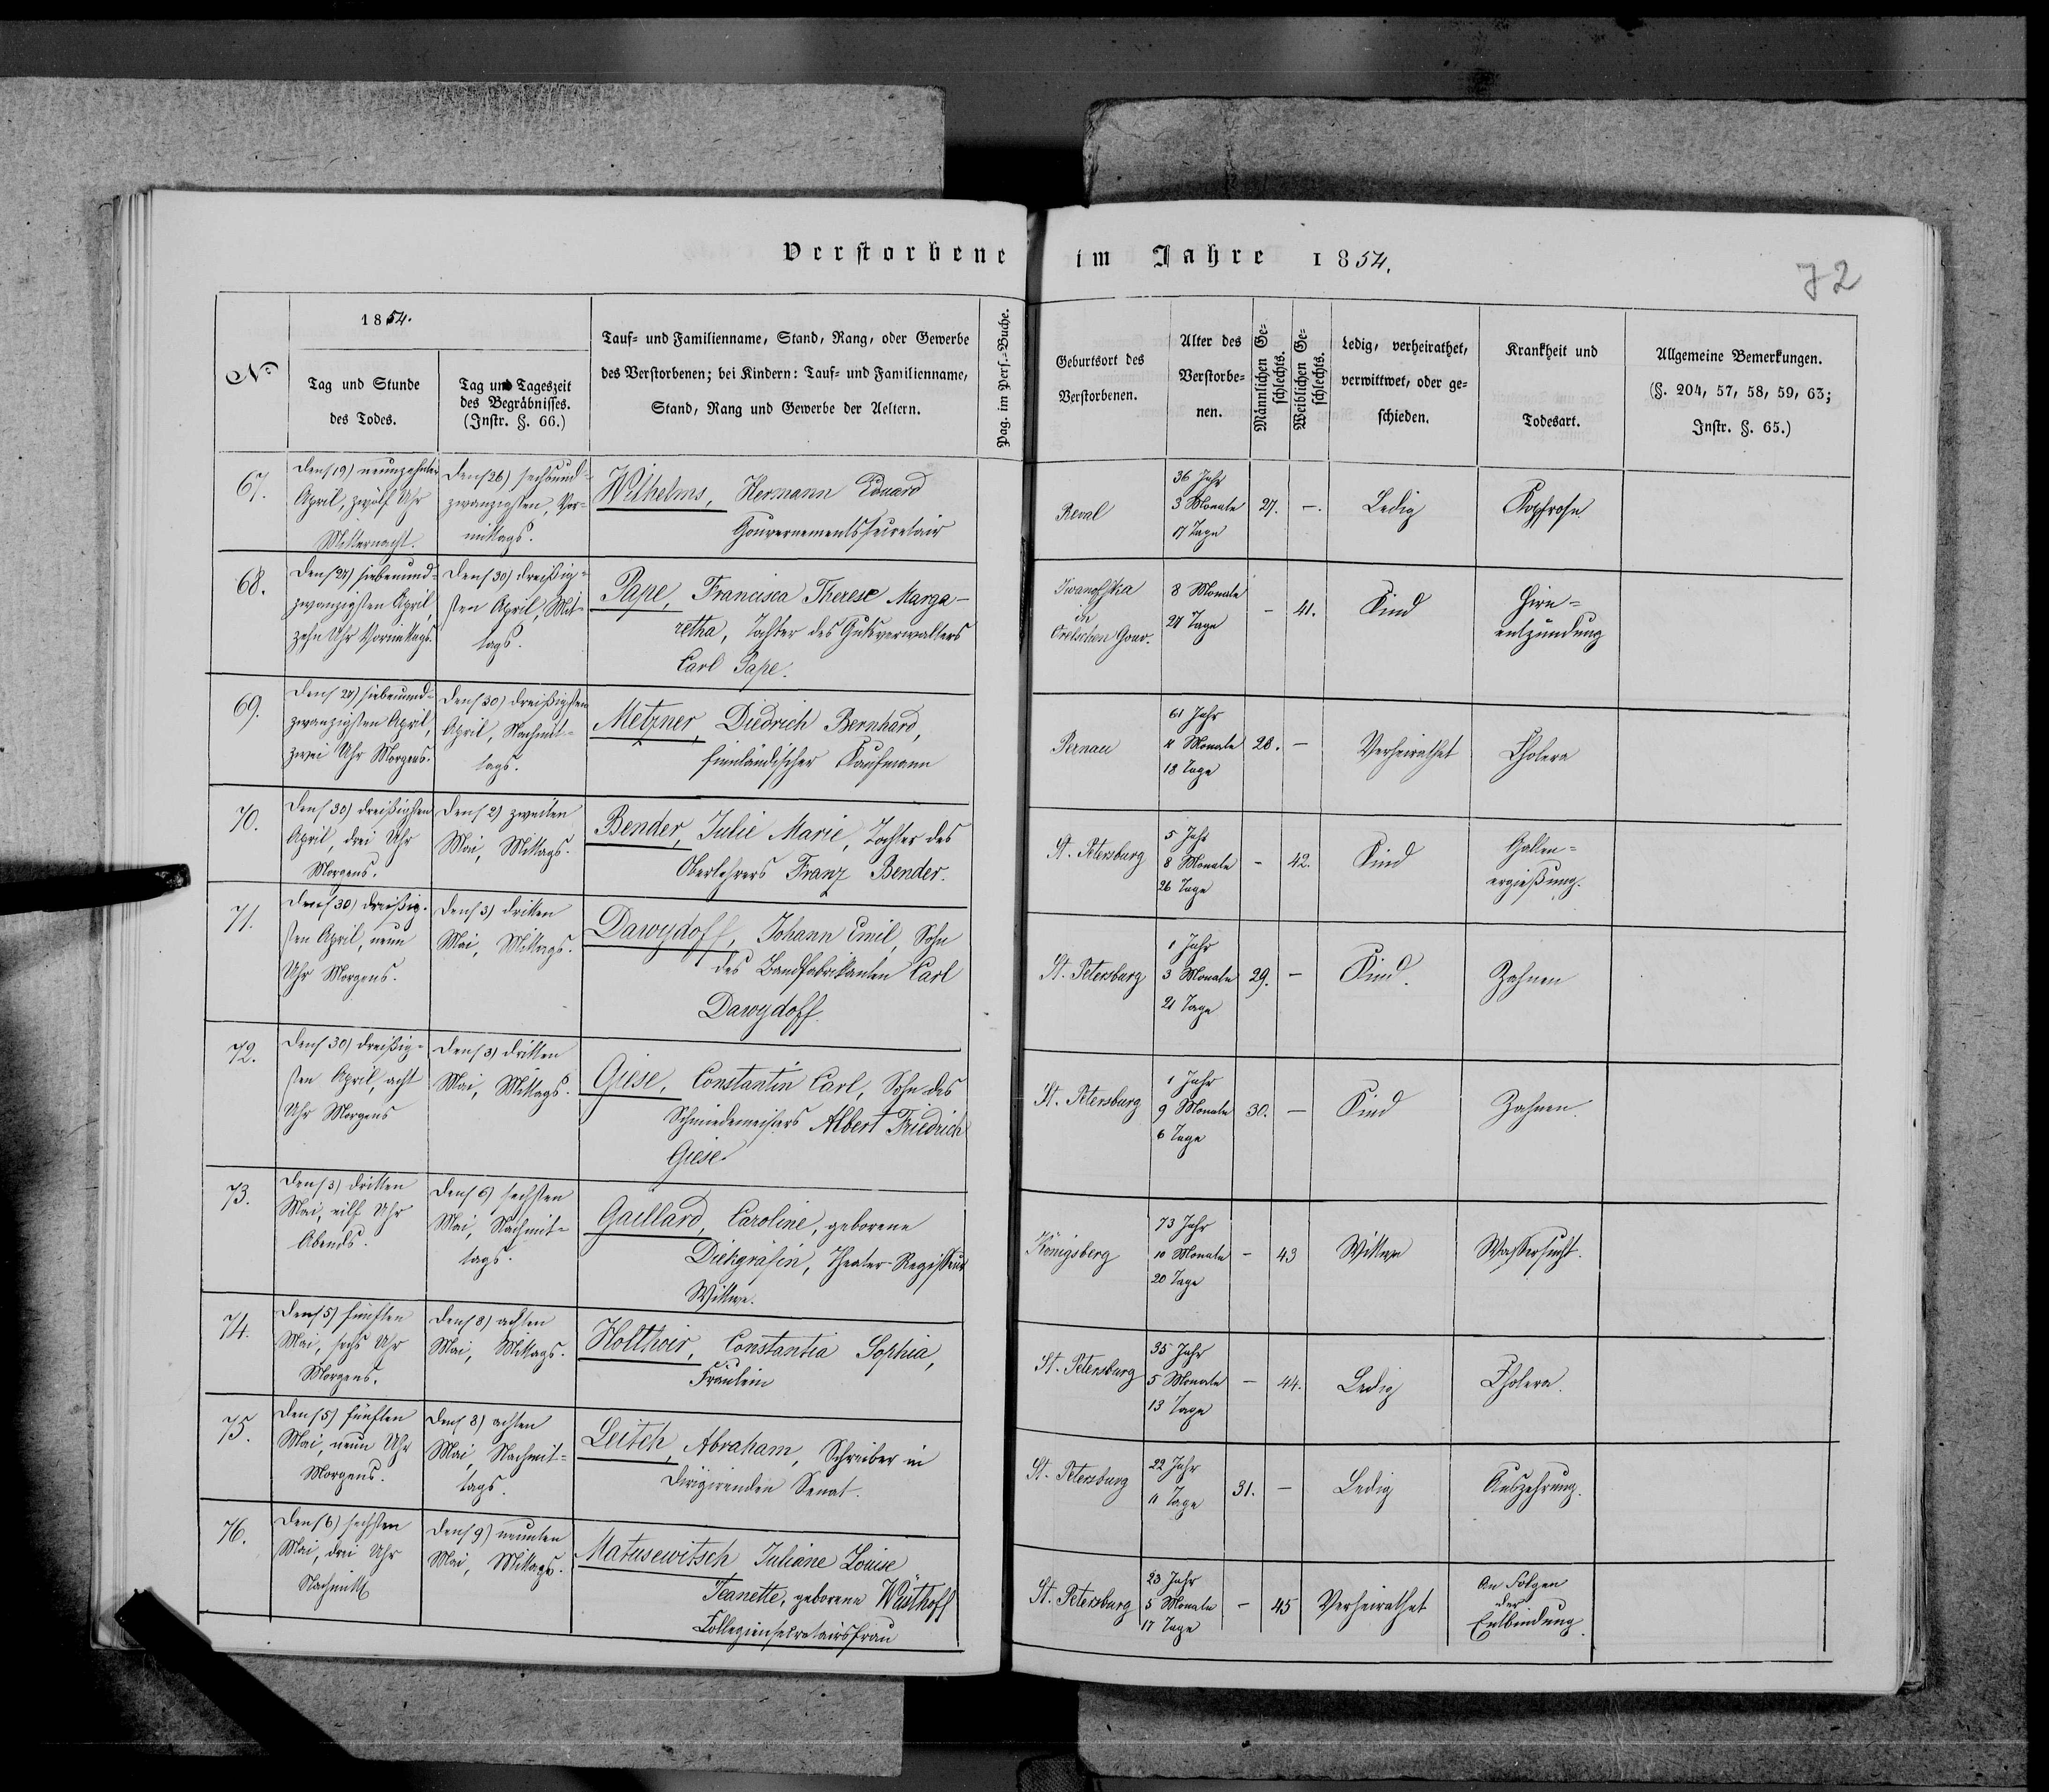 Verstorbene im Jahre 1854.
72
No
1854.
Tag und Stunde
des Todes.
Tag und Tageszeit
des Begräbnisses.
(Instr. §. 66.)
Tauf- und Familienname, Stand, Rang, oder Gewerbe
des Verstorbenen; bei Kindern: Tauf- und Familienname,
Stand, Rang und Gewerbe der Aeltern.
Pag. im Pers.-Buche.
Geburtsort des
Verstorbenen.
Alter des
Verstorbe-
nen.
Männlichen Ge-
schlechts.
Weiblichen Ge-
schlechts.
Ledig, verheirathet,
verwittwet, oder ge-
schieden.
Krankheit und
Todesart.
Allgemeine Bemerkungen.
(§. 204, 57, 58, 59, 63;
Instr. §. 65.)
67.
Den (19) neunzehnten
April, zwölf Uhr
Mitternacht.
Den (26) sechsund-
zwanzigsten, Vor-
mittags.
Wilhelms, Hermann Eduard
Gouvernementssecretair
Reval
36 Jahr
3 Monate
17 Tage
27.
-.
Ledig
Kopfrose
68.
Den (27) siebenund-
zwanzigsten April,
zehn Uhr Vormittags.
Den (30) dreißig-
sten April, Mit-
tags.
Pape, Francisca Therese Marga-
retha, Tochter des Gutsverwalters
Carl Pape.
Iwanofska
in
Orelschen Gouv.
8 Monate
27 Tage
-
41.
Kind
Hirn-
entzündung
69.
Den (27) siebenund-
zwanzigsten April,
zwei Uhr Morgens.
Den (30) dreißigsten
April, Nachmit-
tags.
Metzner, Diedrich Bernhard,
finnländischer Kaufmann
Pernau
61 Jahr
11 Monate
18 Tage
28.
-
Verheirathet
Cholera
70.
Den (30) dreißigsten
April, drei Uhr
Morgens.
Den (2) zweiten
Mai, Mittags.
Bender, Julie Marie, Tochter des
Oberlehrers Franz Bender.
St. Petersburg
5 Jahr
8 Monate
26 Tage
-
42.
Kind
Gallen-
ergießung.
71.
Den (30) dreißig-
sten April, neun
Uhr Morgens.
Den (3) dritten
Mai, Mittags.
Dawydoff, Johann Emil, Sohn
des Bandfabrikanten Carl
Dawydoff.
St. Petersburg
1 Jahr
3 Monate
21 Tage
29.
-
Kind.
Zahnen
72.
Den (30) dreißig-
sten April, acht
Uhr Morgens
Den (3) dritten
Mai, Mittags.
Giese, Constantin Carl, Sohn des
Schmiedemeisters Albert Friedrich
Giese
St. Petersburg
1 Jahr
9 Monate
6 Tage
30.
-
Kind
Zahnen.
73.
Den (3) dritten
Mai, eilf Uhr
Abends.
Den (6) sechsten
Mai, Nachmit-
tags.
Gaillard, Caroline, geborene
Diekgräfin, Theater-Regisseur
Wittwe.
Königsberg
73 Jahr
10 Monate
20 Tage
-
43
Wittwe
Wassersucht.
74.
Den (5) fünften
Mai, sechs Uhr
Morgens.
Den (8) achten
Mai, Mittags.
Holthoir, Constantia Sophia,
Fräulein
St. Petersburg
35 Jahr
5 Monate
13 Tage
-
44.
Ledig
Cholera.
75.
Den (5) fünften
Mai, neun Uhr
Morgens.
Den (8) achten
Mai, Nachmit-
tags.
Leitch, Abraham, Schreiber in
Dirigirenden Senat.
St. Petersburg
22 Jahr
11 Tage
31.
-
Ledig
Auszehrung.
76.
Den (6) sechsten
Mai, drei Uhr
Nachmitt
Den (9) neunten
Mai, Mittags.
Matusewitsch Juliane Louise
Jeanette, geborene Wüsthoff
Collegiensecretairsfrau
St. Petersburg
23 Jahr
5 Monate
17 Tage
-
45
Verheirathet
An Folgen
der
Entbindung.